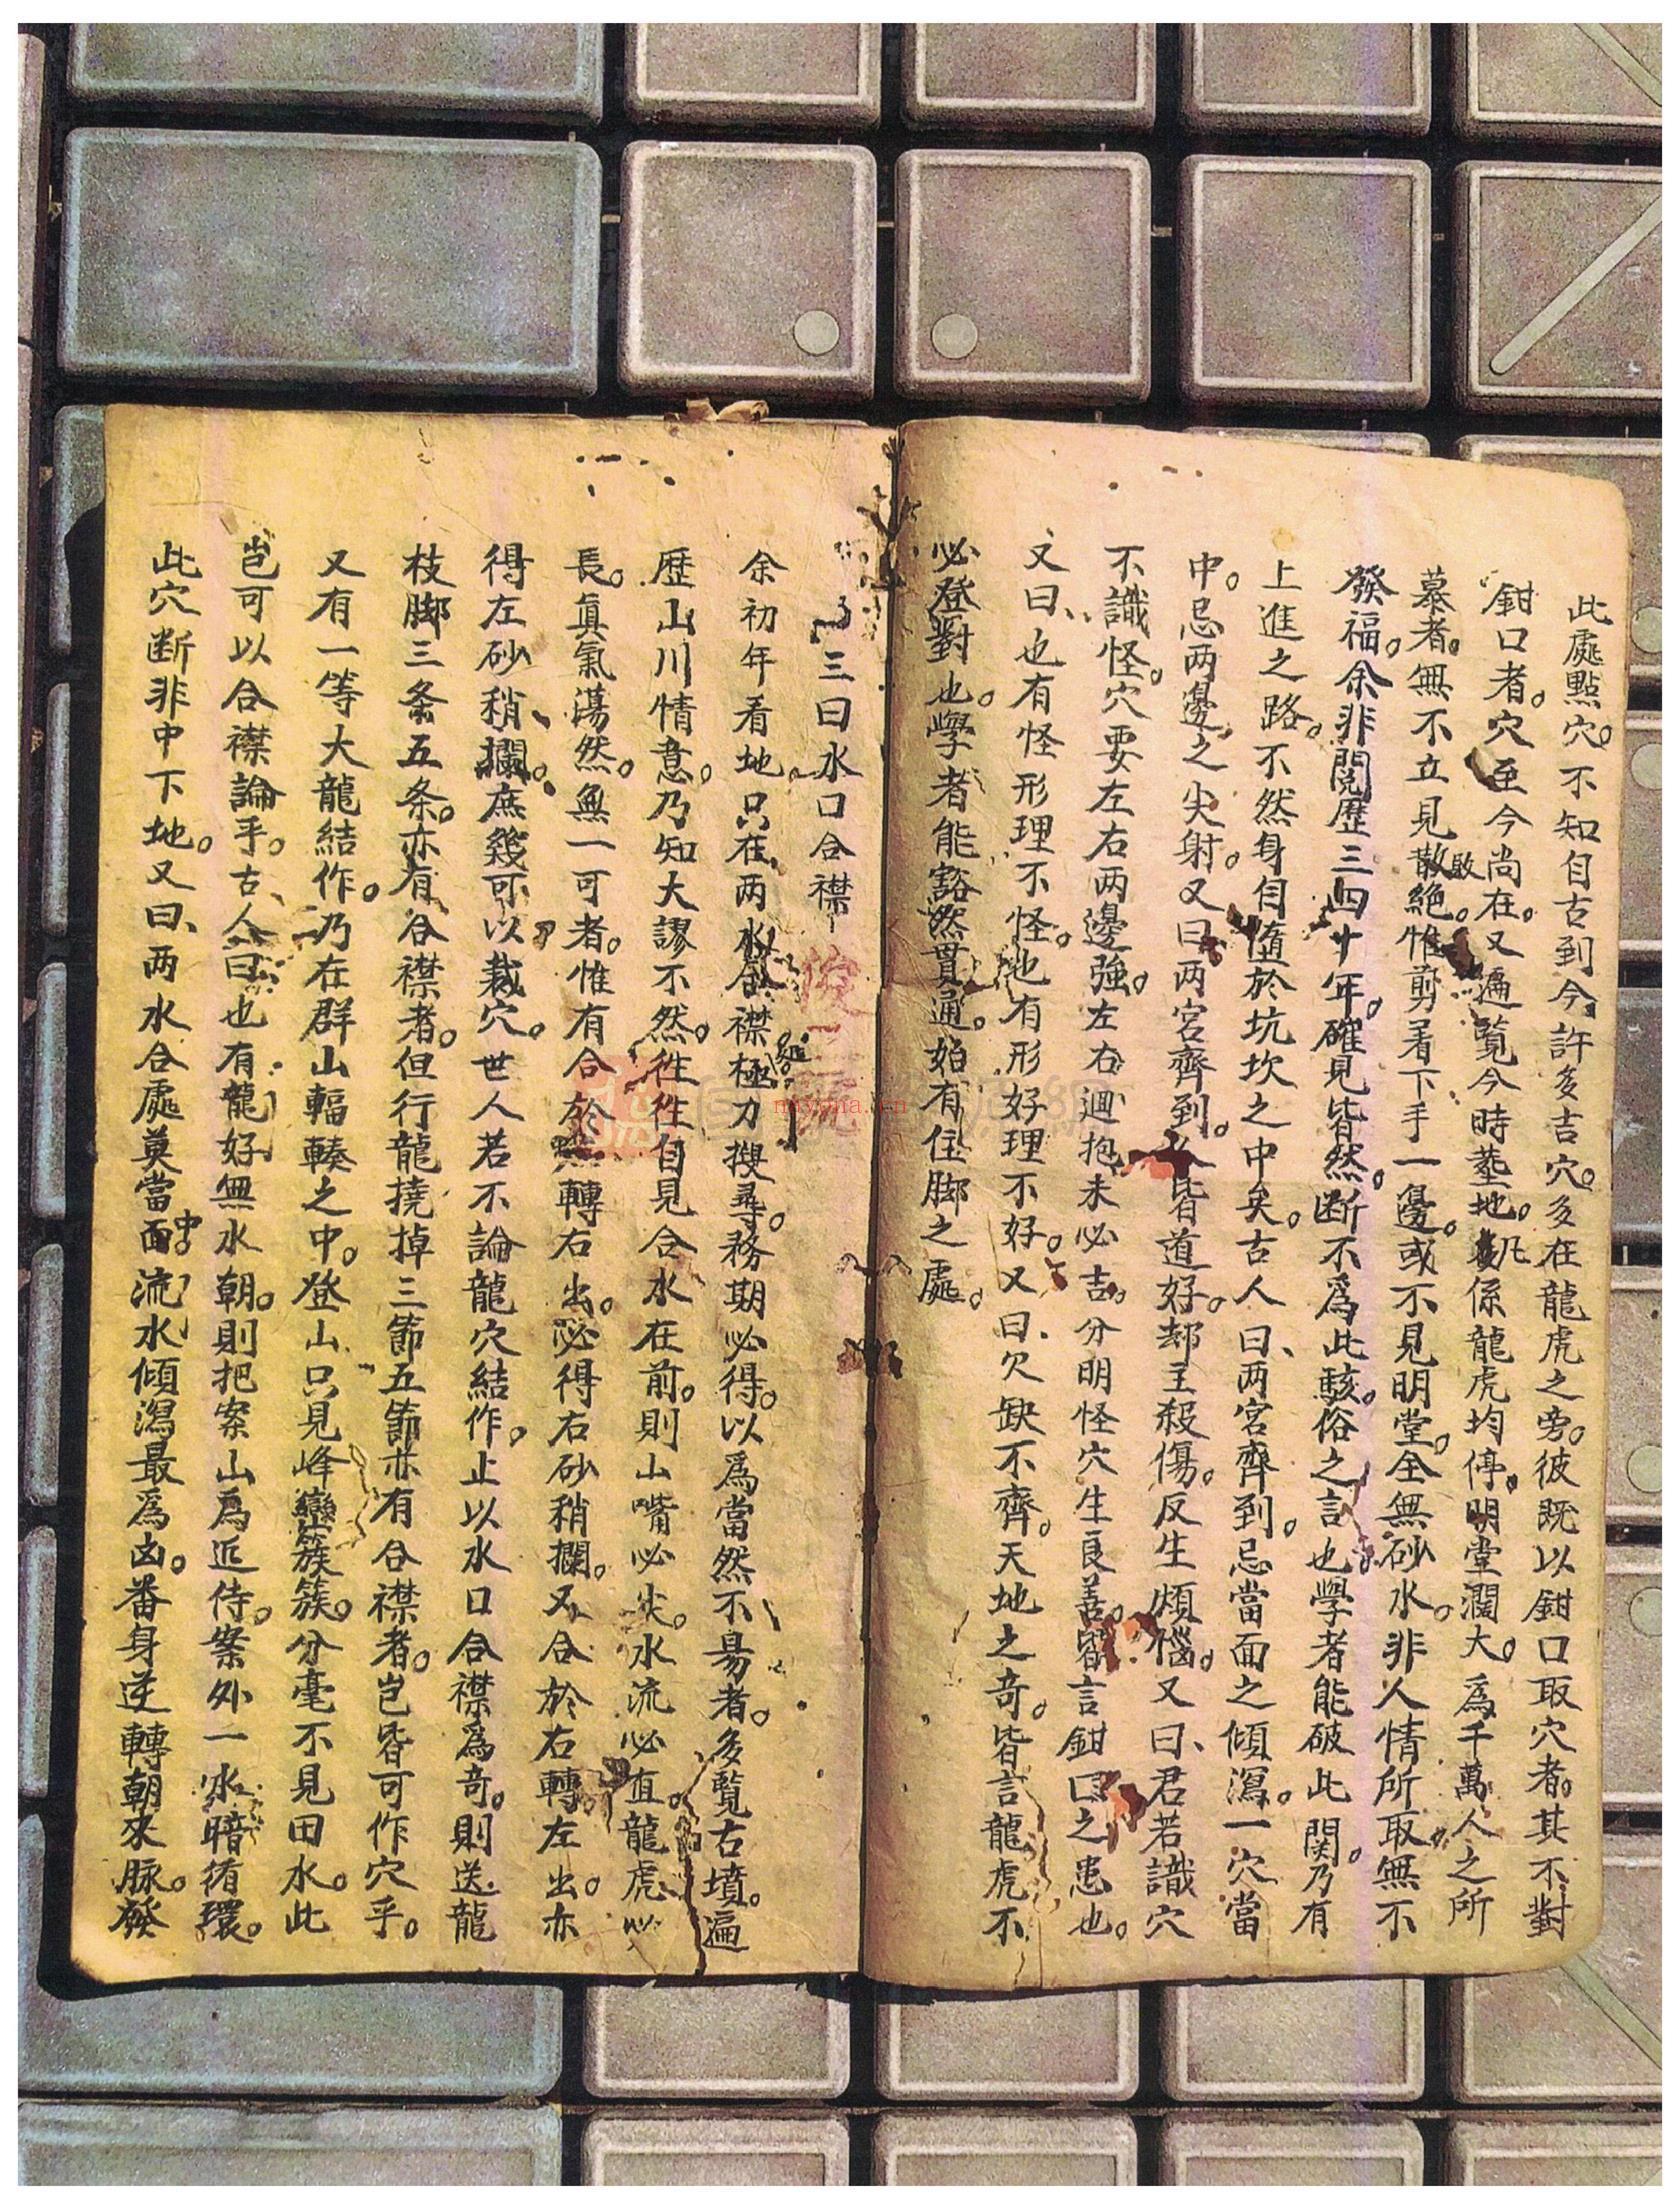 此處點穴。不知自古到今許多吉穴。多在龍虎之旁。彼既以鉗口取穴者。其不對
鉗口者。穴至今尚在。又遍覽今時塟地。凡係龍虎均停。明堂濶大。為千萬人之所
慕者。無不立見敗絕。惟剪着下手一邊。或不見明堂。全無砂水。非人情所取。無不
發福。余非閱歷三四十年。確見皆然。断不為此駭俗之言也。學者能破此関。乃有
上進之路。不然身自墮於坑坎之中矣。古人曰、两宮齊到。忌當面之傾瀉。一穴當
中。忌两邊之尖射。又曰两宮齊到。人皆道好。却主殺傷。反生煩惱。又曰、君若識穴
不識怪。穴要左右两邊強。左右迴抱未必吉。分明怪穴生良善。皆言鉗口之患也。
又曰、也有怪形理不怪。也有形好理不好。又曰、欠缺不齊。天地之奇。皆言龍虎不
必登對也。學者能豁然貫通。始有住脚之處。
三曰水口合襟
余初年看地。只在两水合襟極力搜尋。務期必得。以為當然不易者。多覽古墳。遍
歷山川情意。乃知大謬不然。徃徃自見合水在前。則山嘴必尖。水流必直。龍虎必
長。真氣蕩然。無一可者。惟有合於轉右出。必得右砂稍攔。又合於右轉左出。亦
得左砂稍攔。庶幾可以裁穴。世人若不論龍穴結作。止以水口合襟為奇。則送龍
枝脚三条五条。亦有合襟者。但行龍撓掉三節五節亦有合襟者。岂皆可作穴乎。
又有一等大龍結作。乃在群山輻輳之中。登山只見峰巒簇簇。分毫不見田水。此
岂可以合襟論乎。古人曰也有龍好無水朝。則把案山為近侍。案外一水暗循環。
此穴断非中下地。又曰、两水合處莫當中。面流水傾瀉最為凶。番身逆轉朝來脉。發